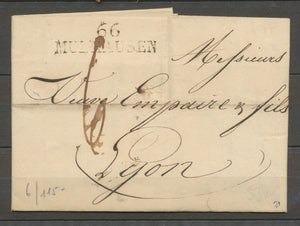 66
MULHAUSEN
Messieurs
Veuve Empaire & fils
à Lyon
6/115-